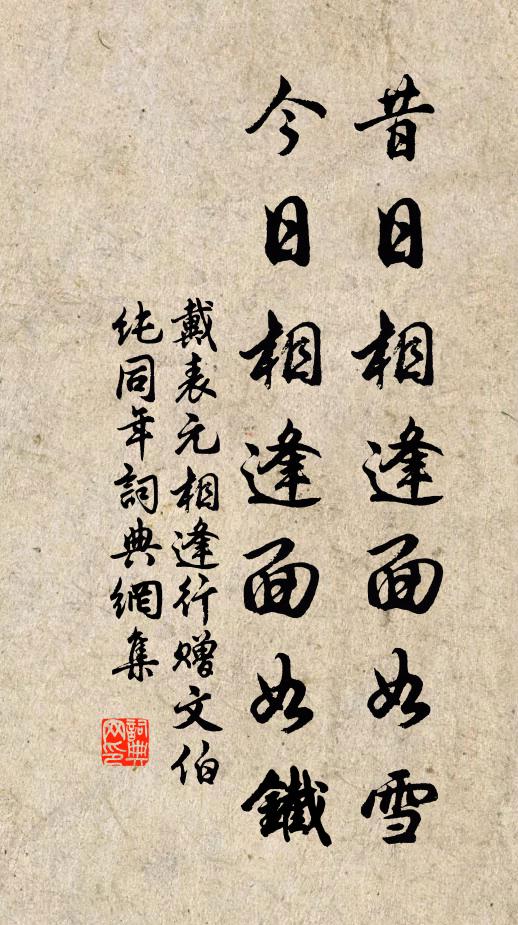 昔日相逢面如雪
今日相逢面如鐵
戴表元相逢行赠文伯
纯同年詞典網集
詞典
网印